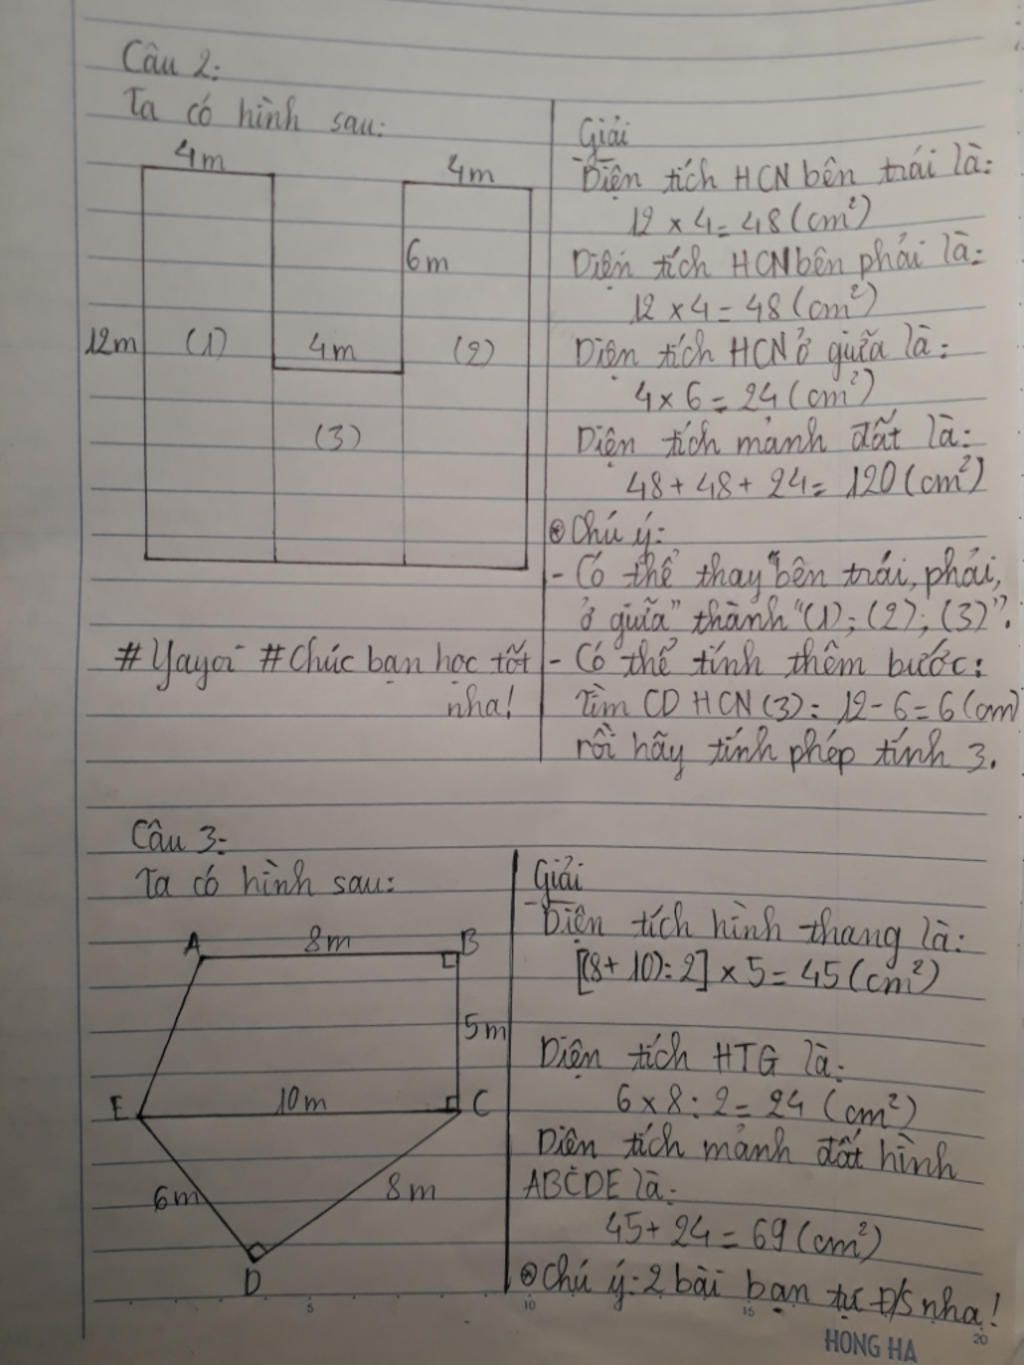 Câu 2:
Ta có hình sau:
4m
4m
6m
12m
(1)
4m
(2)
(3)
#Yayoi #Chúc bạn học tốt
nha!
Giải
Diện tích HCN bên trái là:
12 × 4 = 48 (cm²)
Diện tích HCN bên phải là:
12 × 4 = 48 (cm²)
Diện tích HCN ở giữa là:
4 × 6 = 24 (cm²)
Diện tích mảnh đất là:
48 + 48 + 24 = 120 (cm²)
Chú ý:
- Có thể thay "bên trái, phải,
ở giữa" thành "(1); (2); (3)".
- Có thể tính thêm bước:
Tìm CD HCN (3): 12 - 6 = 6 (cm)
rồi hãy tính phép tính 3.
Câu 3:
Ta có hình sau:
A
8m
B
5m
E
10m
C
6m
8m
D
Giải
Diện tích hình thang là:
[(8 + 10) : 2] × 5 = 45 (cm²)
Diện tích HTG là:
6 × 8 : 2 = 24 (cm²)
Diện tích mảnh đất hình
ABCDE là:
45 + 24 = 69 (cm²)
Chú ý: 2 bài bạn tự Đ/S nha!
5 10 15 20
HONG HA